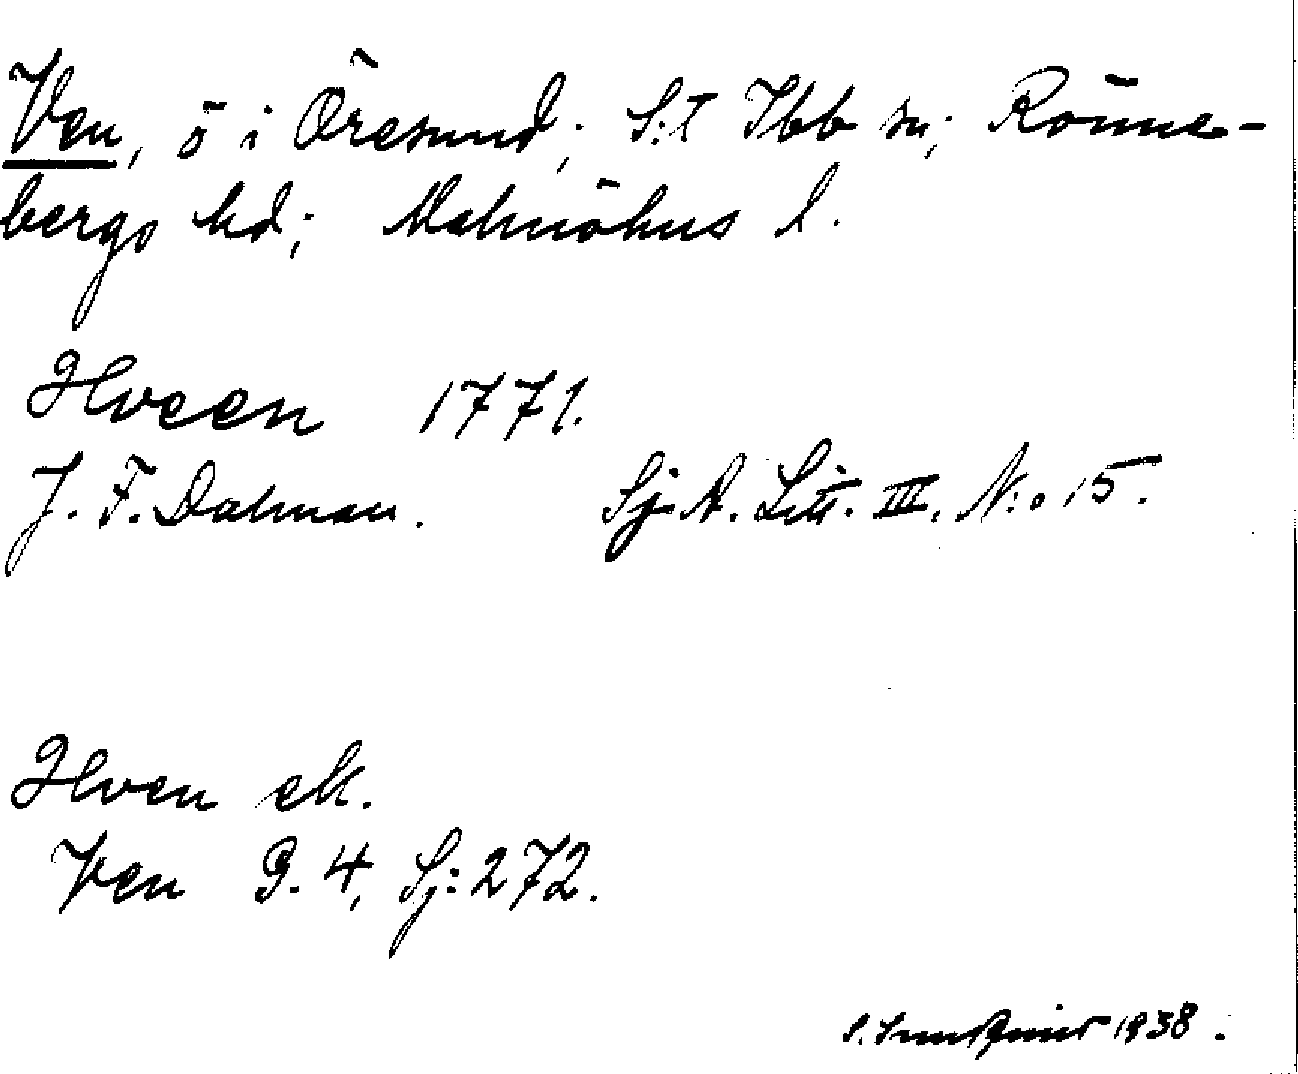 Ven, ö i Öresund; S:t Ibb sn; Rönne-
bergs hd; Malmöhus l.
Hveen 1771.
J. F. Dalman. Sj. A. Litt. III. N:o 15.
Hven ek.
Ven G. 4, Sj: 272.
1938.